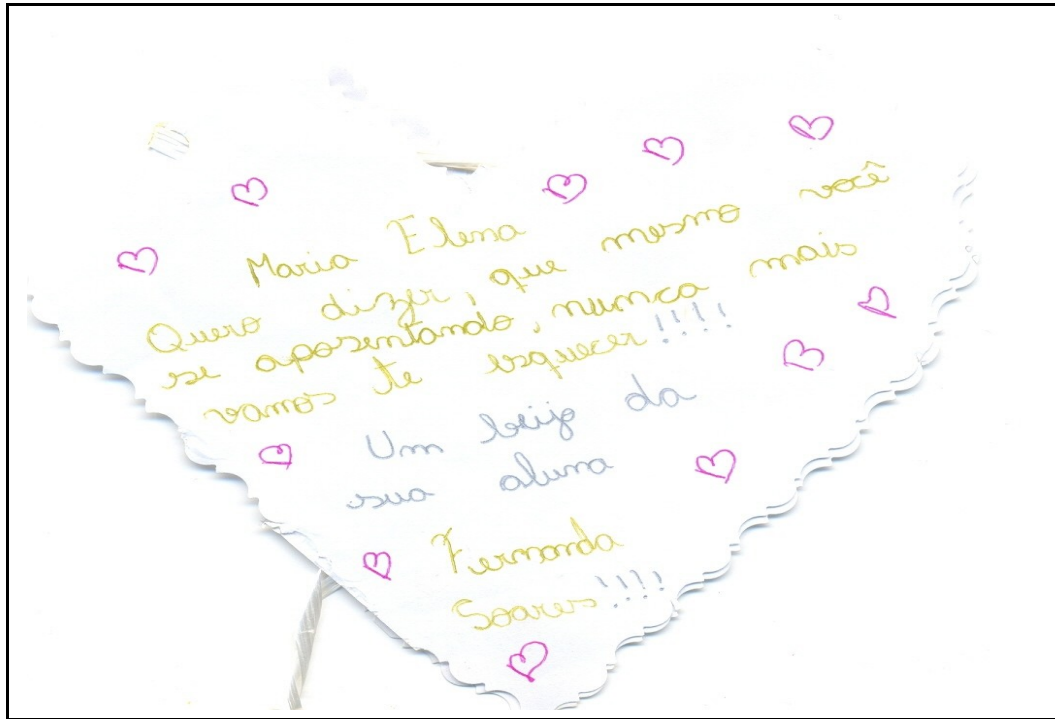 Maria Elena
Quero dizer, que mesmo você
se aposentando, nunca mais
vamos te esquecer!!!!
Um beijo da
sua aluna
Fernanda
Soares!!!!